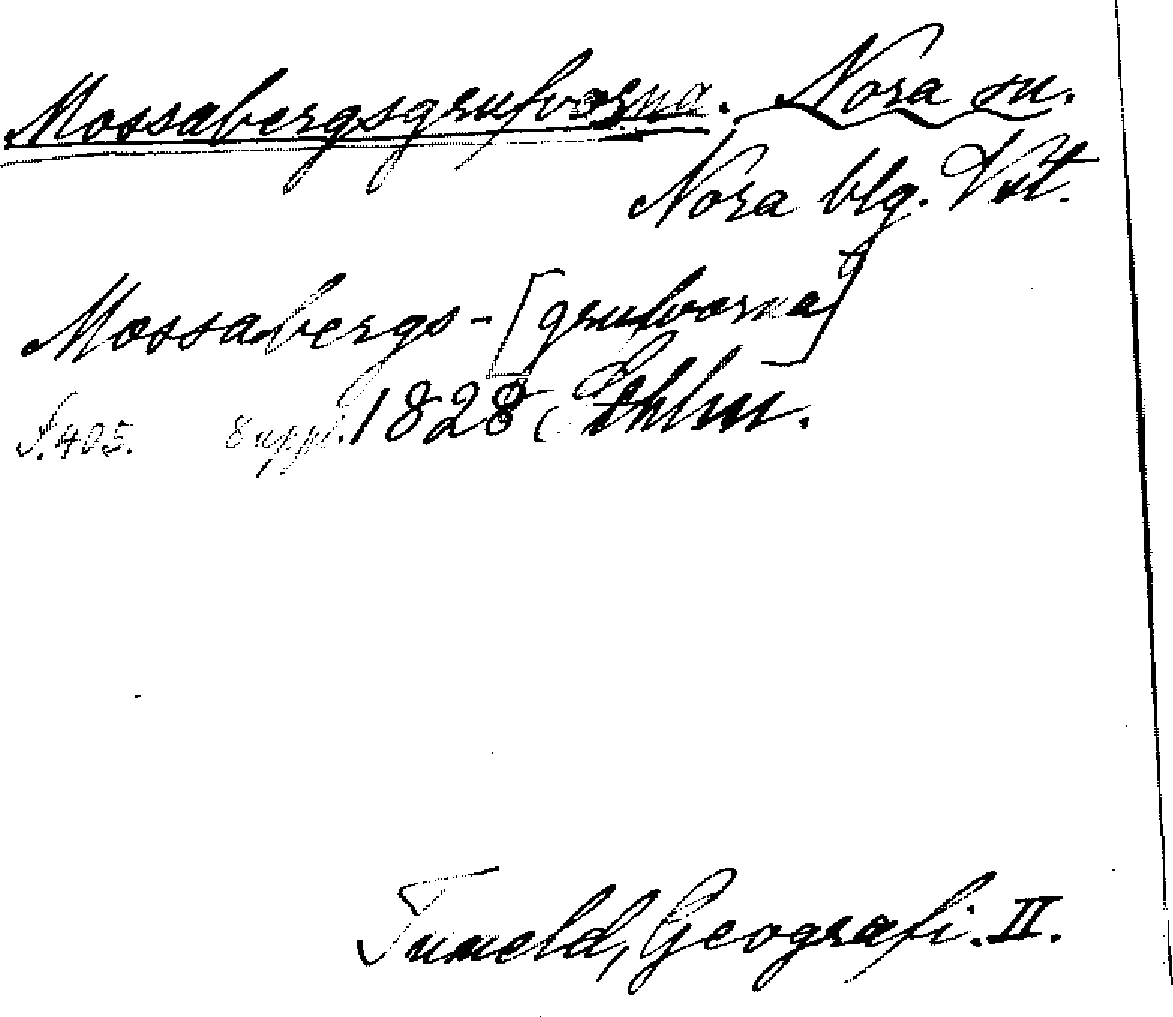 Mossabergsgrufvorna. Nora sn.
Nora blg. Vstl.
Mossabergs-[grufvorna]
S. 405. Suppl. 1828 Sthlm.
Tuneld, Geografi. II.